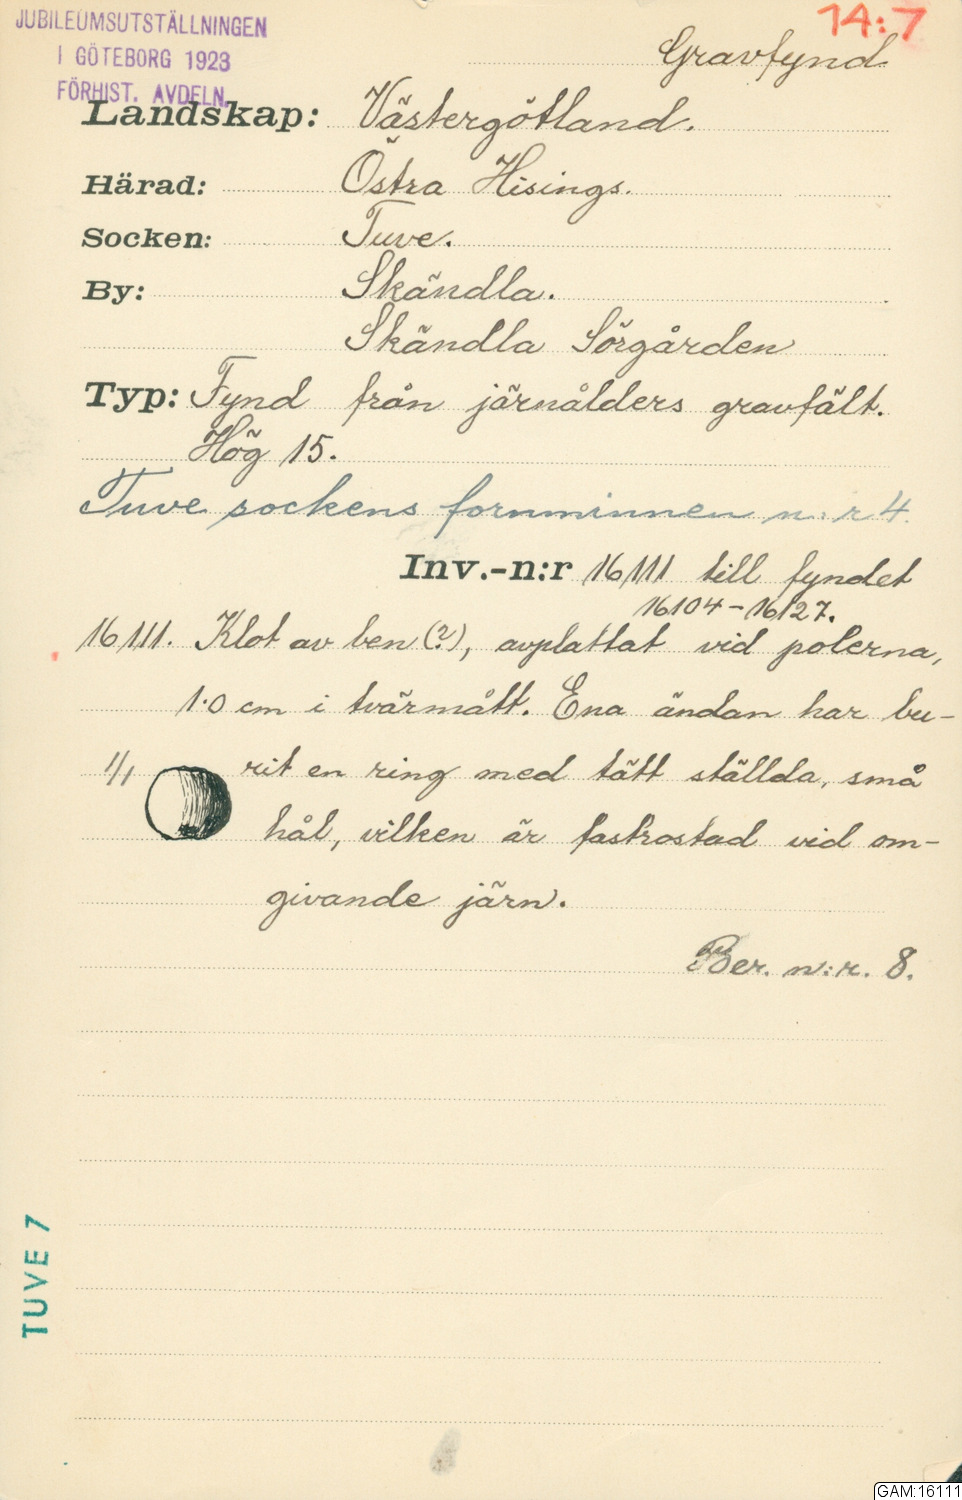 JUBILEUMSUTSTÄLLNINGEN
I GÖTEBORG 1923
FÖRHIST. AVDELN.
14:7
Gravfynd
Landskap: Västergötland.
Härad: Östra Hisings.
Socken: Tuve.
By: Skändla.
Skändla Sörgården
Typ: Fynd från järnålders gravfält.
Hög 15.
Tuve sockens fornminnen n:r 4.
Inv.-n:r 16111 till fyndet
16104-16127.
16111. Klot av ben (?), avplattat vid polerna,
1·0 cm i tvärmått. Ena ändan har bu-
1/1 rit en ring med tätt ställda, små
hål, vilken är fastrostad vid om-
givande järn.
Ber. n:r. 8.
TUVE 7
GAM:16111